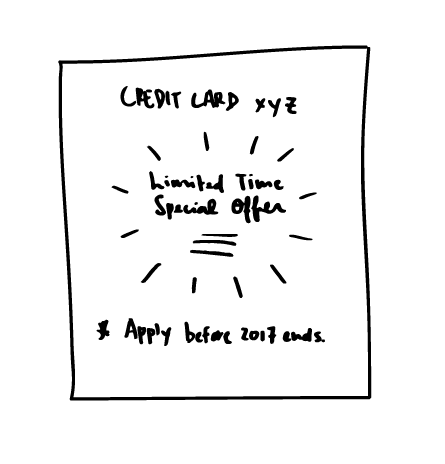 CREDIT CARD XYZ
Limited Time
Special Offer
* Apply before 2017 ends.